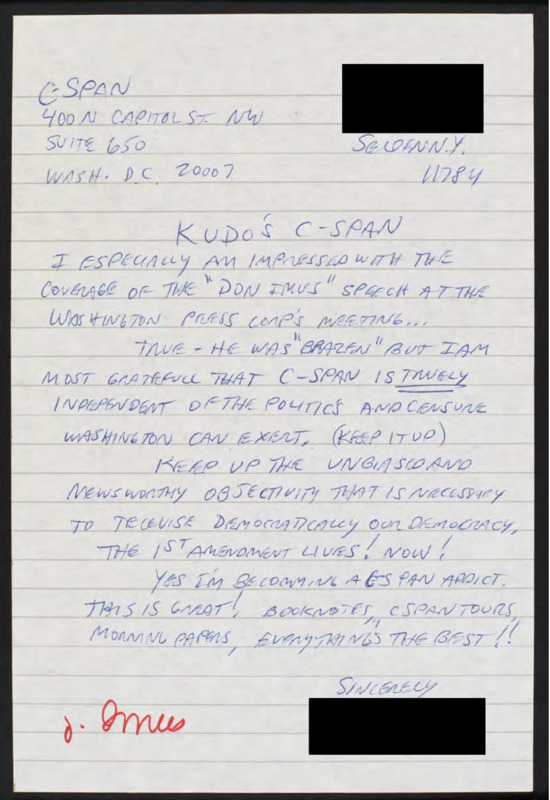 C-SPAN
400 N CAPITOL ST. NW
SUITE 650
WASH. D.C. 20007
SELDEN N.Y.
11784
KUDO'S C-SPAN
I ESPECIALLY AM IMPRESSED WITH THE
COVERAGE OF THE "DON IMUS" SPEECH AT THE
WASHINGTON PRESS CORP'S MEETING...
TRUE - HE WAS "BRAZEN" BUT I AM
MOST GRATEFULL THAT C-SPAN IS TRUELY
INDEPENDENT OF THE POLITICS AND CENSURE
WASHINGTON CAN EXERT. (KEEP IT UP)
KEEP UP THE UNBIASED AND
NEWSWORTHY OBJECTIVITY THAT IS NECESSARY
TO TELEVISE DEMOCRATICALLY OUR DEMOCRACY,
THE 1ST AMENDMENT LIVES! NOW!
YES I'M BECOMMING A CSPAN ADDICT.
THIS IS GREAT! BOOKNOTES, CSPAN TOURS,
MORNING PAPERS, EVERYTHING'S THE BEST!!
SINCERELY